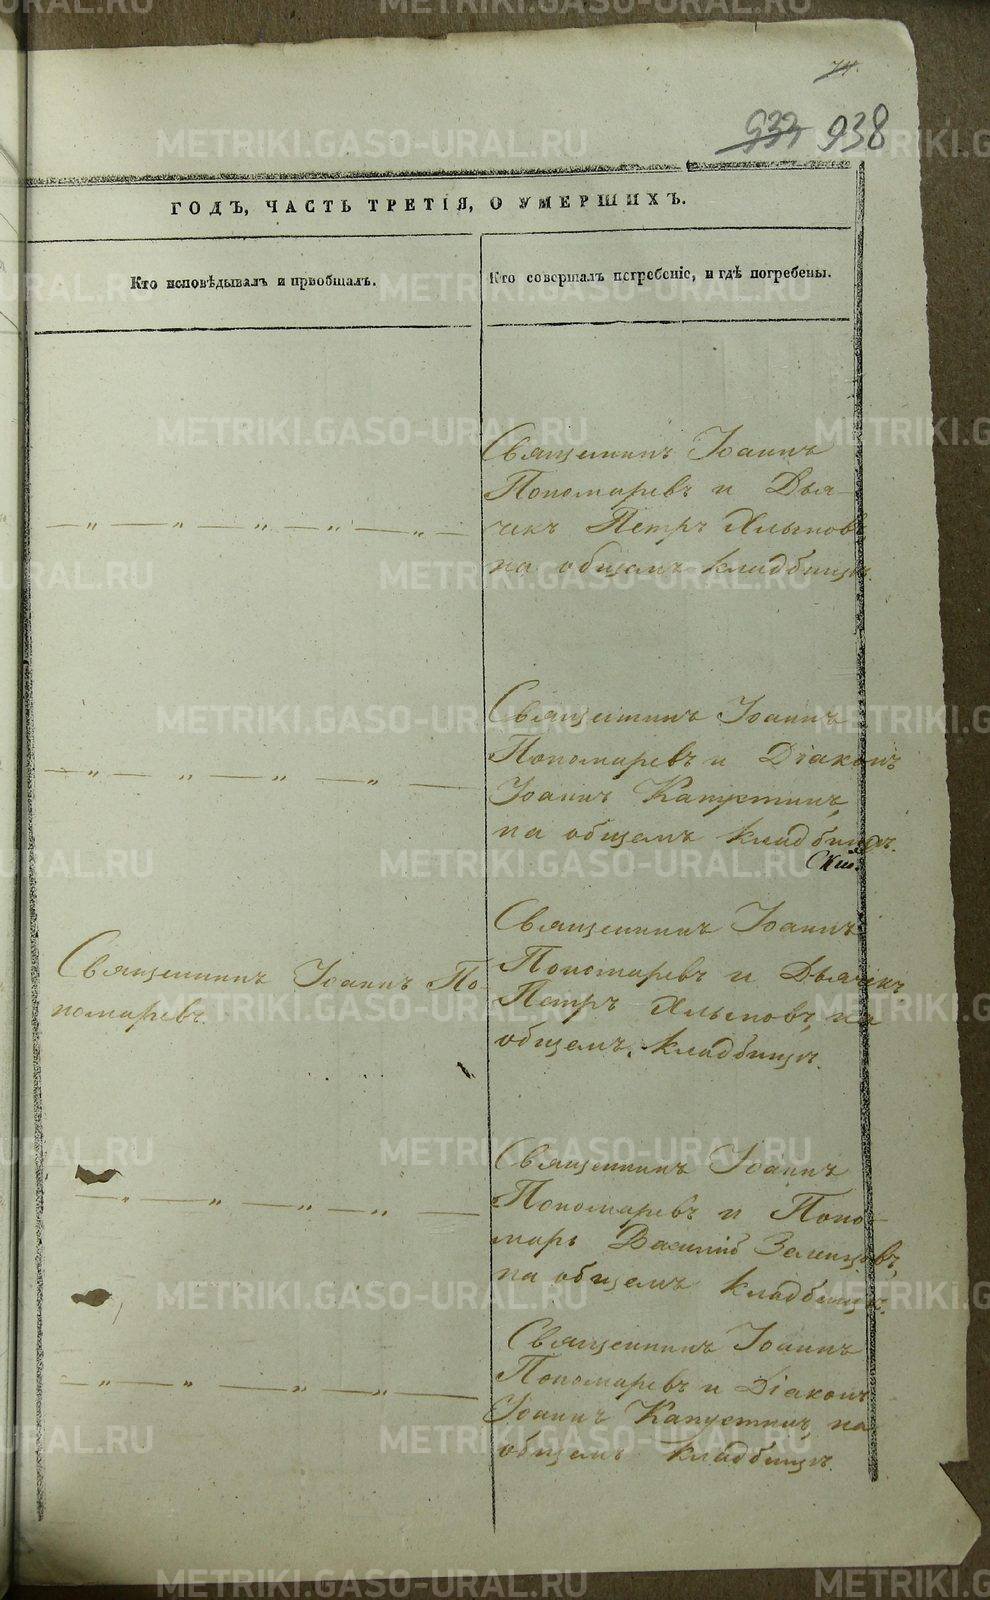 74.
937 938
ГОДЪ, ЧАСТЬ ТРЕТІЯ, О УМЕРШИХЪ.
Кто исповѣдывалъ и пріобщалъ.
Кто совершалъ погребеніе, и гдѣ погребены.
Священникъ Іоаннъ
Пономаревъ и Дья-
— „ — „ — „ — „ — „ —
чекъ Петръ Хлыновъ,
на общемъ кладбищѣ.
Священникъ Іоаннъ
Пономаревъ и Діаконъ
— „ — „ — „ — „ —
Іоаннъ Капустинъ,
на общемъ кладбищѣ.
Священникъ Іоаннъ По-
номаревъ.
Священникъ Іоаннъ
Пономаревъ и Дьячекъ
Петръ Хлыновъ, на
общемъ кладбищѣ.
— „ — „ — „ — „ —
Священникъ Іоаннъ
Пономаревъ и Поно-
марь Василій
на общемъ кладбищѣ.
— „ — „ — „ — „ —
Священникъ Іоаннъ
Пономаревъ и Діаконъ
Іоаннъ Капустинъ, на
общемъ кладбищѣ.
METRIKI.GASO-URAL.RU